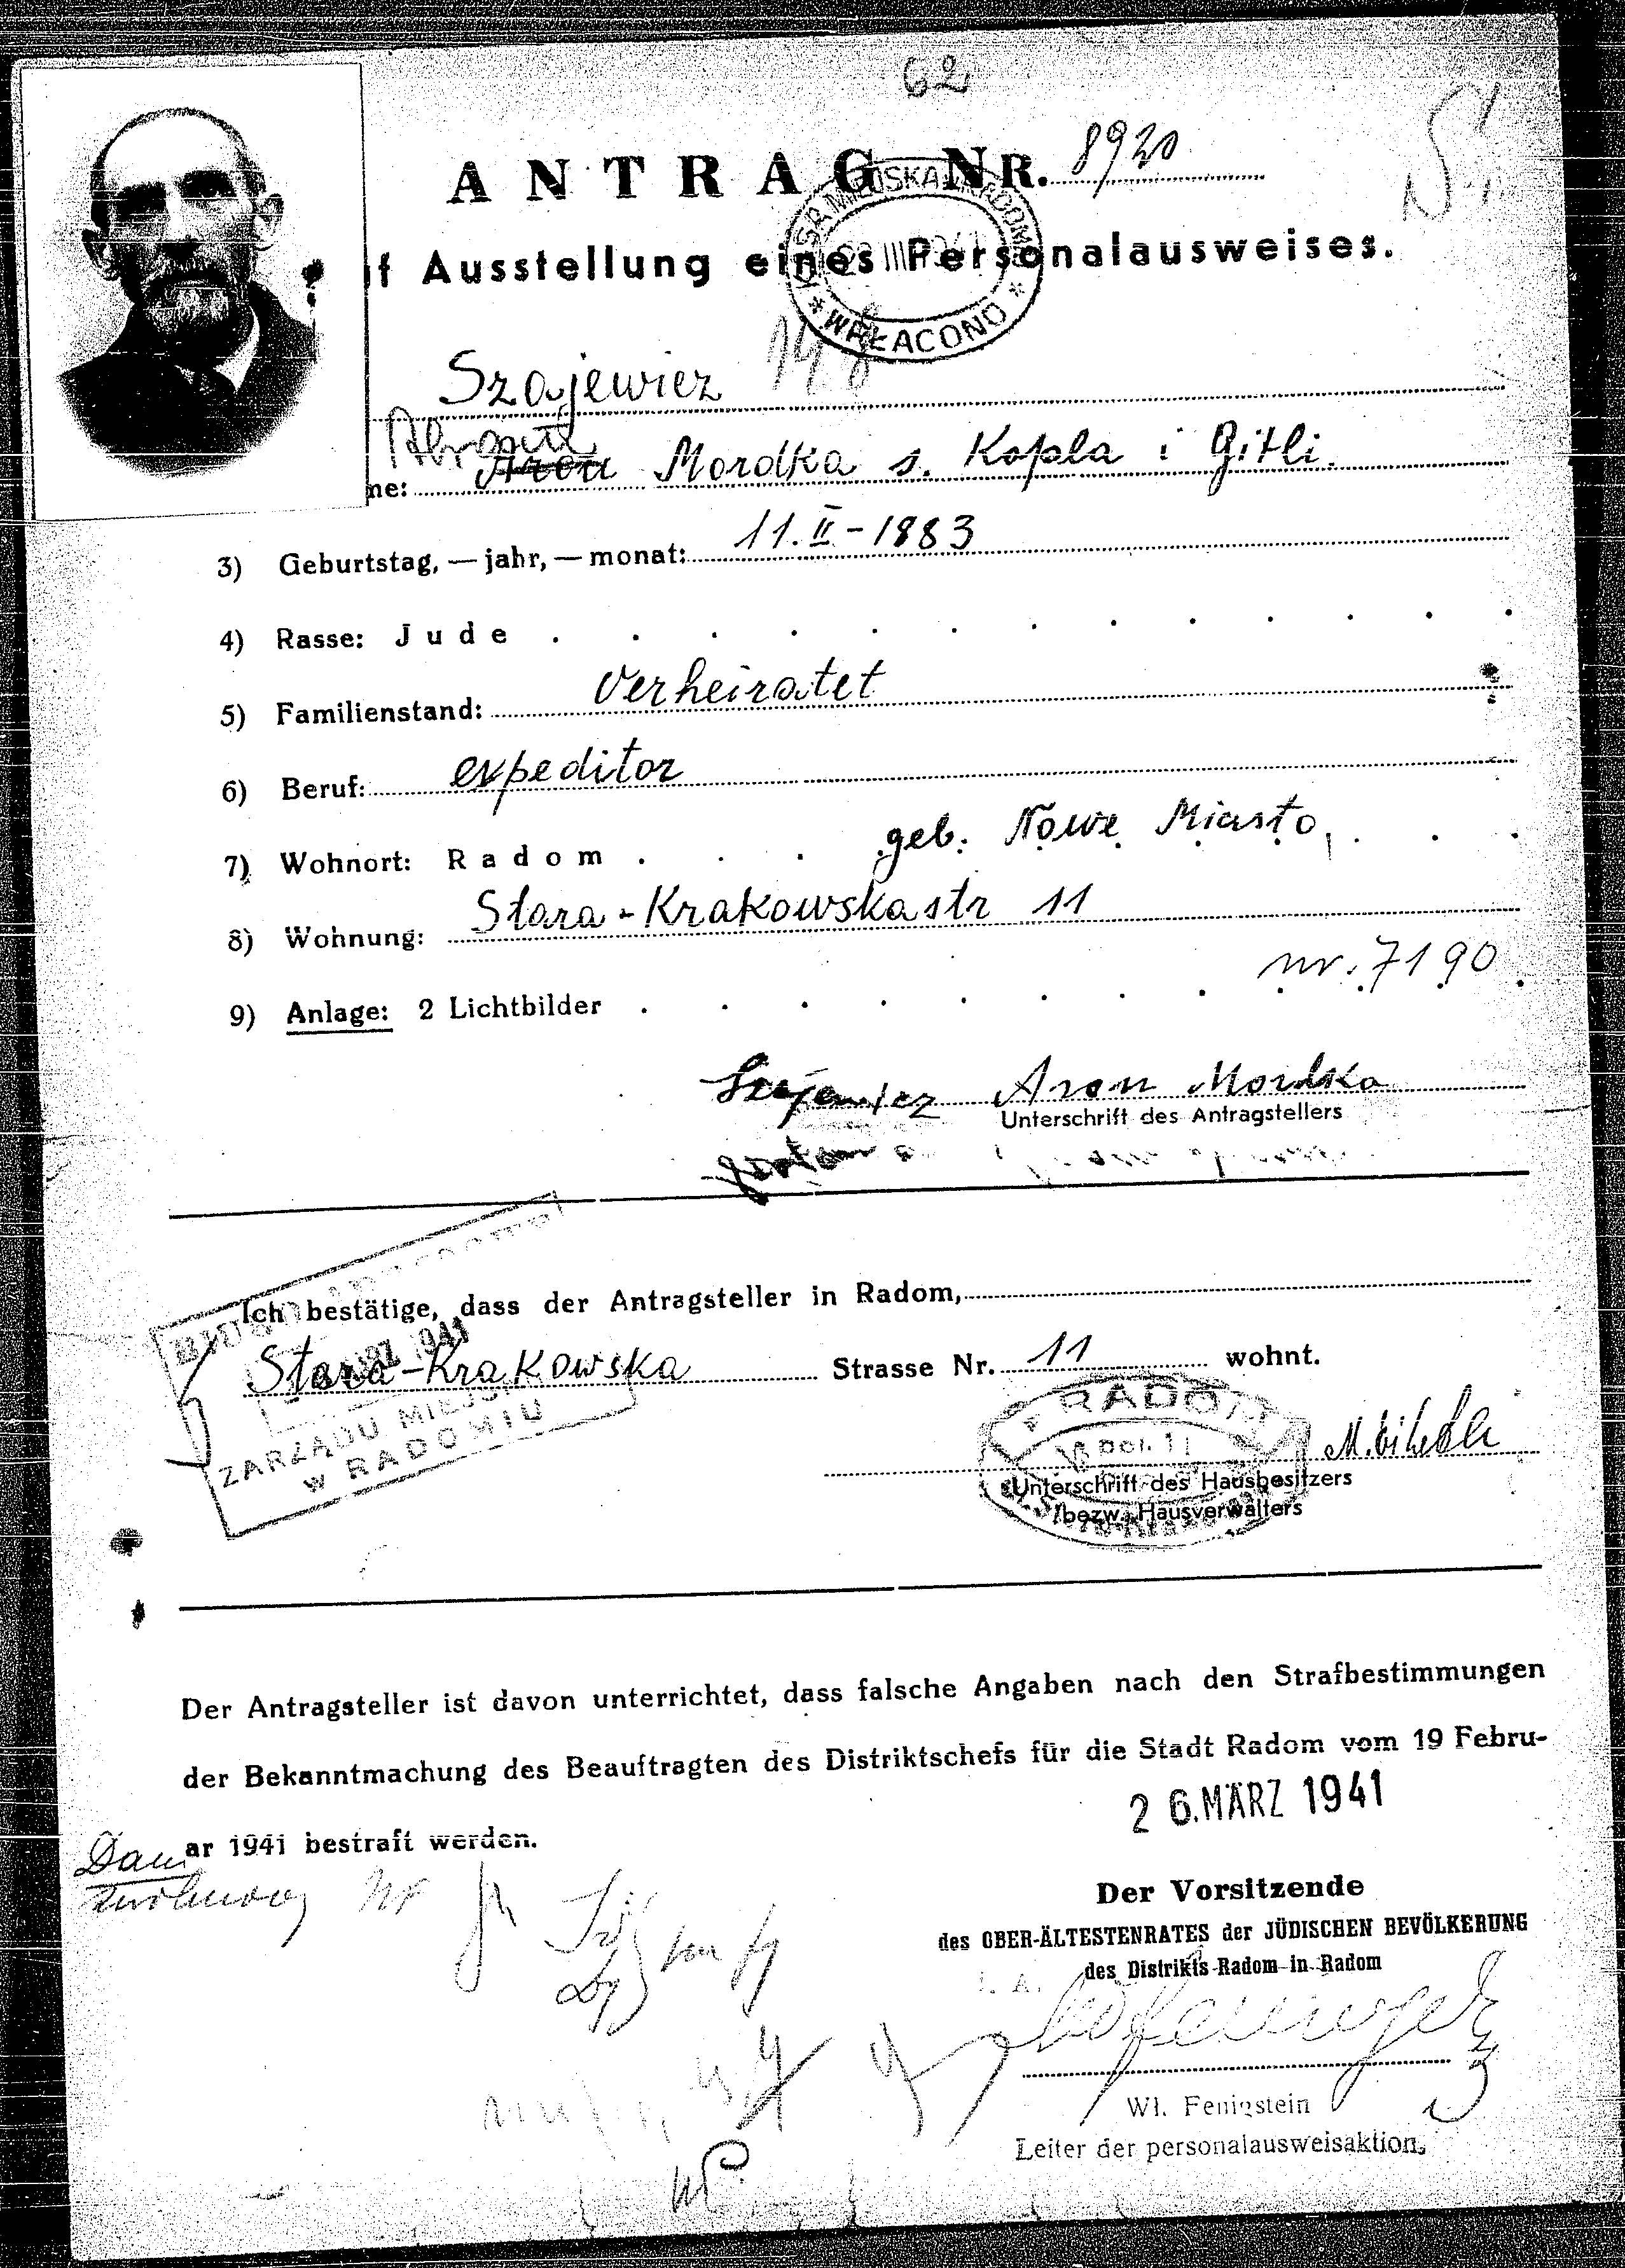 62
ANTRAG NR. 8920
f Ausstellung eines Personalausweises.
WPŁACONO
Szajewicz
Aron Mordka s. Kopla i Gitli.
ne:
3) Geburtstag, — jahr, — monat: 11. II - 1883
4) Rasse: Jude
5) Familienstand: Verheiratet
6) Beruf: expeditor
geb. Nowe Miasto
7) Wohnort: Radom
8) Wohnung: Stara - Krakowskastr 11
nr. 7190
9) Anlage: 2 Lichtbilder
Szajewicz Aron Mordka
Unterschrift des Antragstellers
Ich bestätige, dass der Antragsteller in Radom,
Stara - Krakowska Strasse Nr. 11 wohnt.
ZARZĄDU MIEJSK
w RADOMIU
RADOM
Unterschrift des Hausbesitzers
bezw. Hausverwalters
Der Antragsteller ist davon unterrichtet, dass falsche Angaben nach den Strafbestimmungen
der Bekanntmachung des Beauftragten des Distriktschefs für die Stadt Radom vom 19 Febru-
ar 1941 bestraft werden.
26. MÄRZ 1941
Der Vorsitzende
des OBER-ÄLTESTENRATES der JÜDISCHEN BEVÖLKERUNG
des Distrikts Radom in Radom
I. A.
Wł. Fenigstein
Leiter der personalausweisaktion.